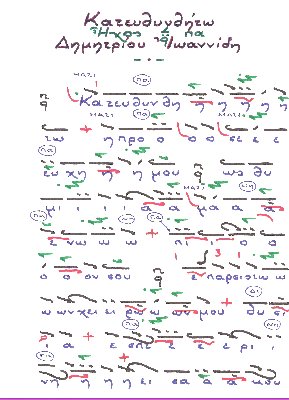 Κατευθυνθήτω
Ἦχος πα
Δημητρίου Ἰωαννίδη
Κα τευ θυν θη η η η η
τω η προ ο ο σε ε ε
ευ χη η η μου ως θυ
μι ι ι α α μα α α
ε νω ω ω πι ι ο ο
ο ο ον σου ε παρσι ω ω
ω ων χει ει ρω ω ων μου θυ σι
ι α ε σπε ε ε ρι ι
νη η η η ει σα α α κου